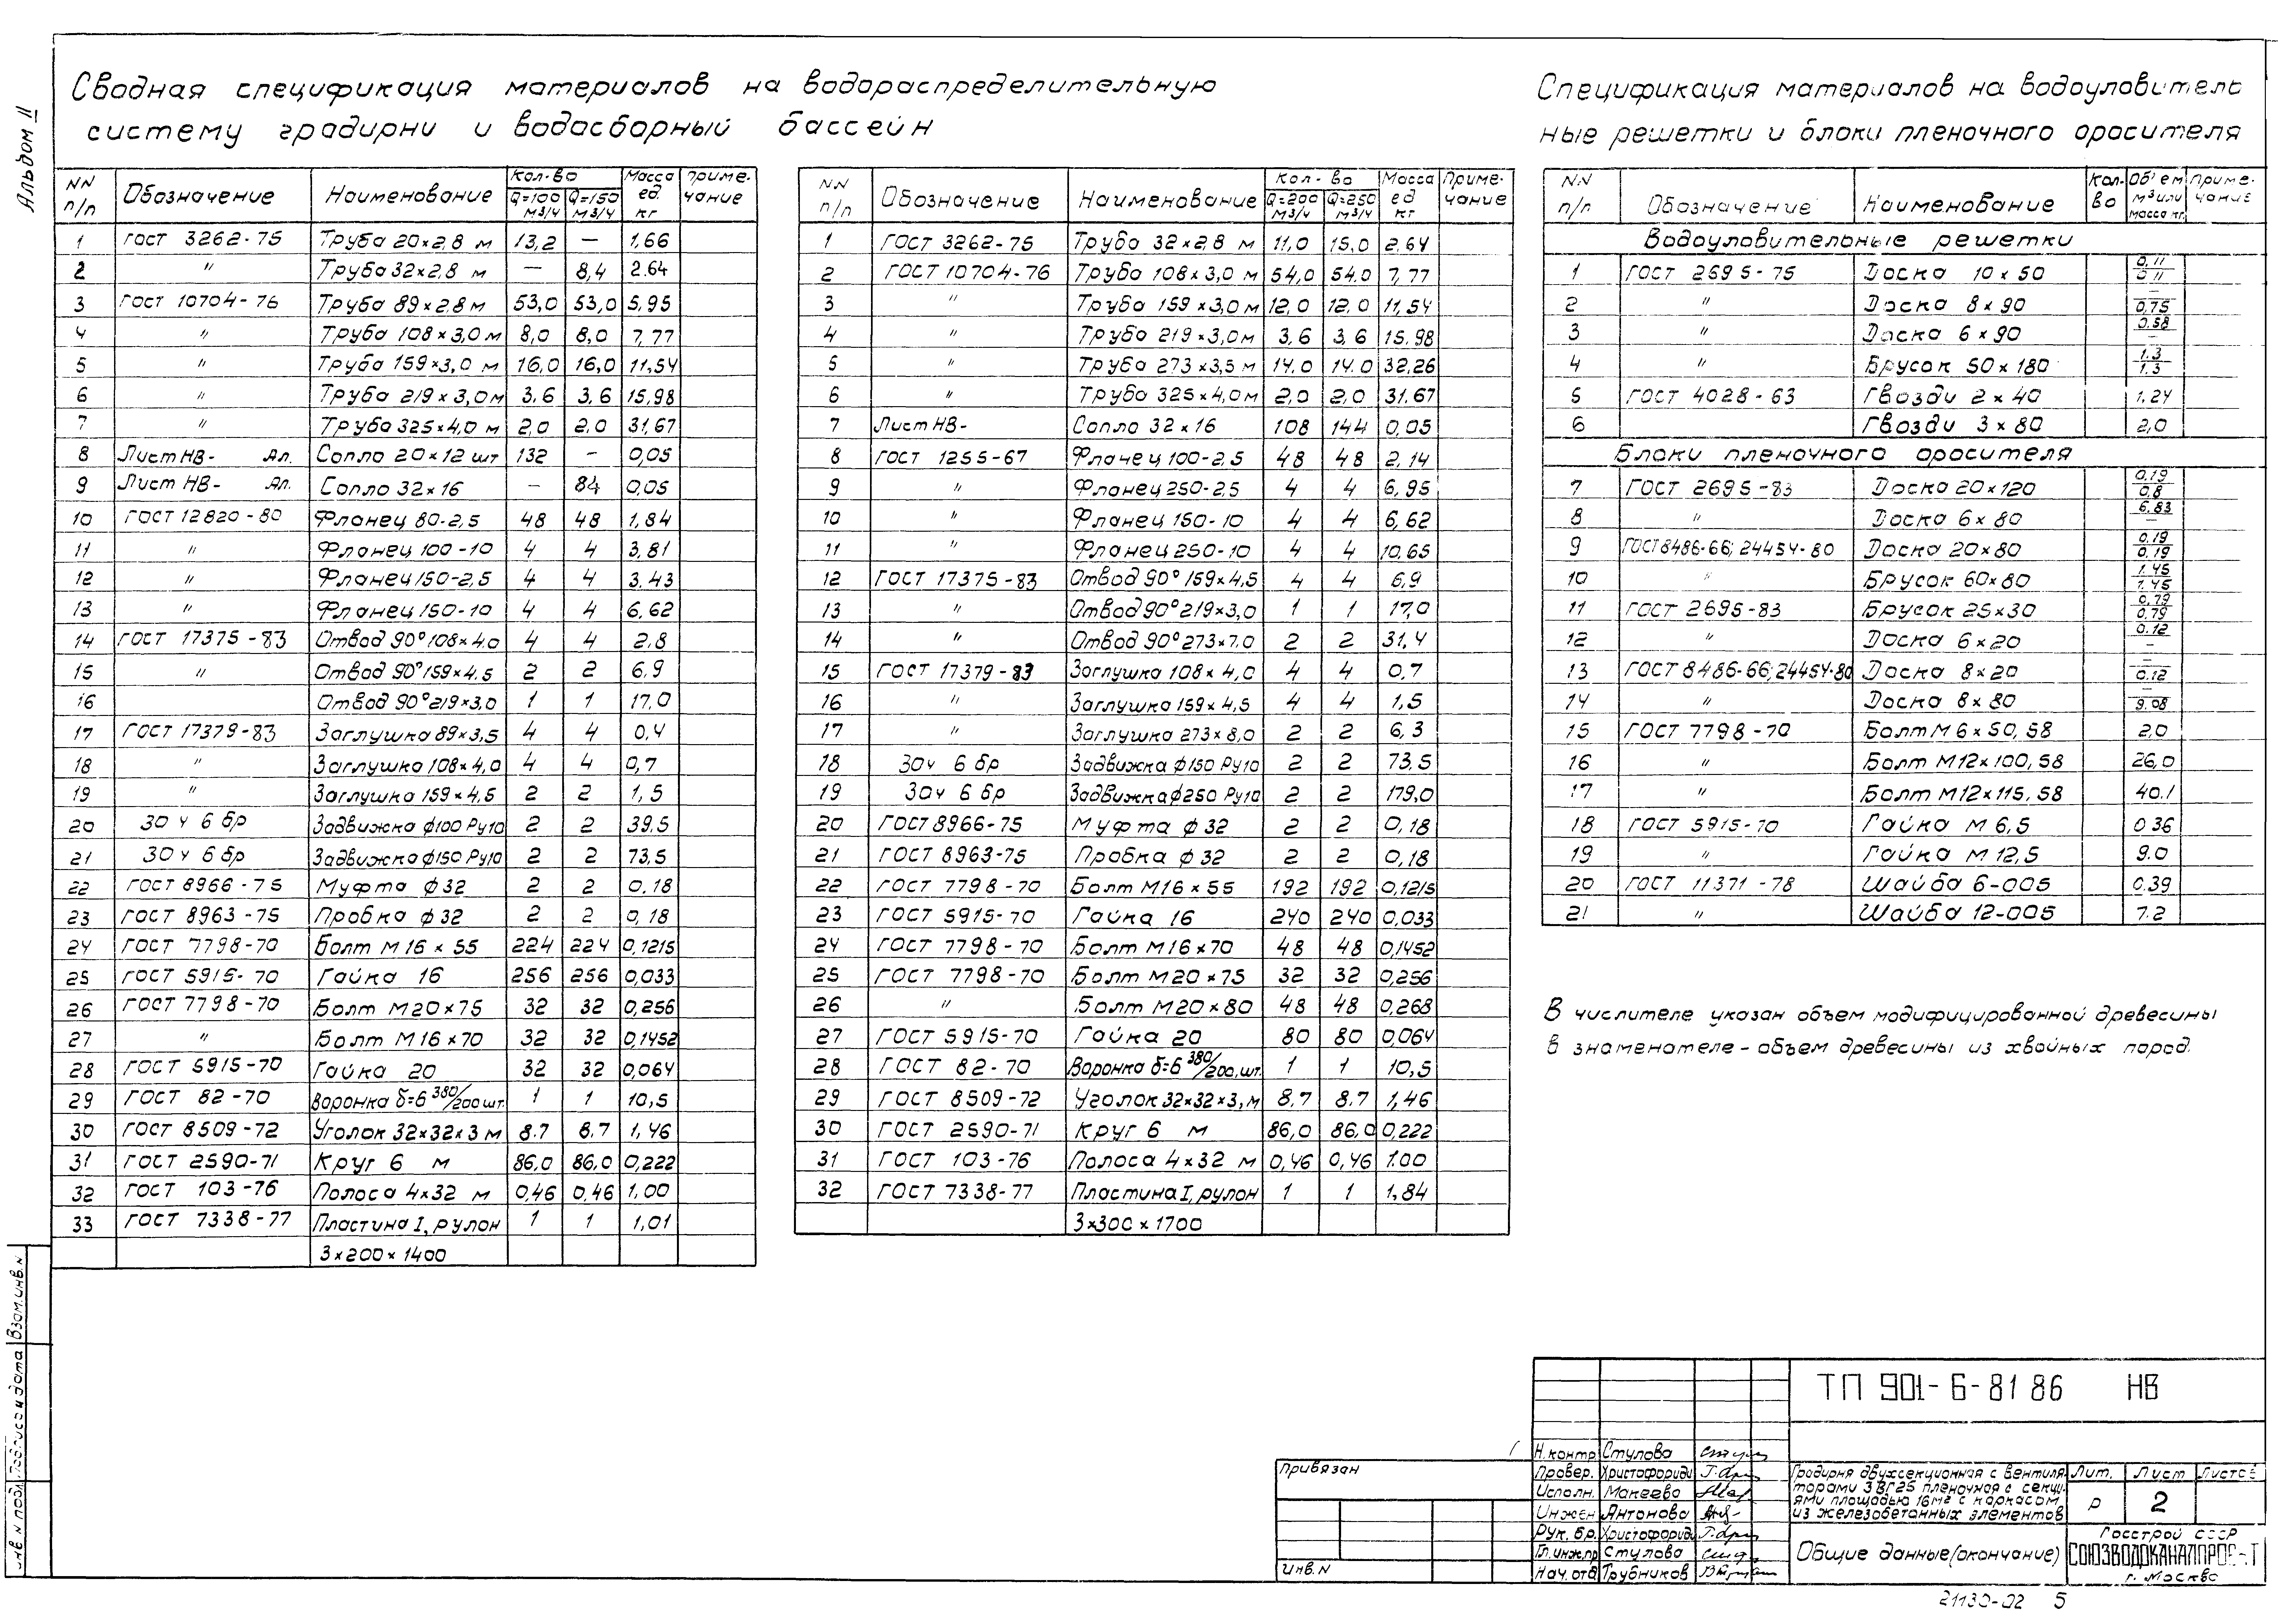 Альбом II
Сводная спецификация материалов на водораспределительную
систему градирни и водосборный бассейн
NN п/п | Обозначение | Наименование | Кол-во Q=100 м3/ч | Q=150 м3/ч | Масса ед. кг | Приме-чание
1 ГОСТ 3262-75 Труба 20×2,8 м 13,2 — 1,66
2 " Труба 32×2,8 м — 8,4 2.64
3 ГОСТ 10704-76 Труба 89×2,8 м 53,0 53,0 5,95
4 " Труба 108×3,0 м 8,0 8,0 7,77
5 " Труба 159×3,0 м 16,0 16,0 11,54
6 " Труба 219×3,0 м 3,6 3,6 15,98
7 " Труба 325×4,0 м 2,0 2,0 31,67
8 Лист НВ- Ал. Сопло 20×12 шт 132 – 0,05
9 Лист НВ- Ал. Сопло 32×16 – 84 0,05
10 ГОСТ 12820-80 Фланец 80-2,5 48 48 1,84
11 " Фланец 100-10 4 4 3,81
12 " Фланец 150-2,5 4 4 3,43
13 " Фланец 150-10 4 4 6,62
14 ГОСТ 17375-83 Отвод 90° 108×4,0 4 4 2,8
15 " Отвод 90° 159×4,5 2 2 6,9
16 Отвод 90° 219×3,0 1 1 17,0
17 ГОСТ 17379-83 Заглушка 89×3,5 4 4 0,4
18 " Заглушка 108×4,0 4 4 0,7
19 " Заглушка 159×4,5 2 2 1,5
20 30ч 6бр Задвижка ф100 Ру10 2 2 39,5
21 30ч 6бр Задвижка ф150 Ру10 2 2 73,5
22 ГОСТ 8966-75 Муфта ф32 2 2 0,18
23 ГОСТ 8963-75 Пробка ф32 2 2 0,18
24 ГОСТ 7798-70 Болт М16×55 224 224 0,1215
25 ГОСТ 5915-70 Гайка 16 256 256 0,033
26 ГОСТ 7798-70 Болт М20×75 32 32 0,256
27 " Болт М16×70 32 32 0,1452
28 ГОСТ 5915-70 Гайка 20 32 32 0,064
29 ГОСТ 82-70 Воронка δ=6 380/200 шт. 1 1 10,5
30 ГОСТ 8509-72 Уголок 32×32×3 м 8.7 8.7 1,46
31 ГОСТ 2590-71 Круг 6 м 86,0 86,0 0,222
32 ГОСТ 103-76 Полоса 4×32 м 0,46 0,46 1,00
33 ГОСТ 7338-77 Пластина I, рулон 1 1 1,01
3×200×1400
NN п/п | Обозначение | Наименование | Кол-во Q=200 м3/ч | Q=250 м3/ч | Масса ед кг | Приме-чание
1 ГОСТ 3262-75 Труба 32×2,8 м 11,0 15,0 2,64
2 ГОСТ 10704-76 Труба 108×3,0 м 54,0 54,0 7,77
3 " Труба 159×3,0 м 12,0 12,0 11,54
4 " Труба 219×3,0 м 3,6 3,6 15,98
5 " Труба 273×3,5 м 14,0 14,0 32,26
6 " Труба 325×4,0 м 2,0 2,0 31,67
7 Лист НВ- Сопло 32×16 108 144 0,05
8 ГОСТ 1255-67 Фланец 100-2,5 48 48 2,14
9 " Фланец 250-2,5 4 4 6,95
10 " Фланец 150-10 4 4 6,62
11 " Фланец 250-10 4 4 10,65
12 ГОСТ 17375-83 Отвод 90° 159×4,5 4 4 6,9
13 " Отвод 90° 219×3,0 1 1 17,0
14 " Отвод 90° 273×7,0 2 2 31,4
15 ГОСТ 17379-83 Заглушка 108×4,0 4 4 0,7
16 " Заглушка 159×4,5 4 4 1,5
17 " Заглушка 273×8,0 2 2 6,3
18 30ч 6бр Задвижка ф150 Ру10 2 2 73,5
19 30ч 6бр Задвижка ф250 Ру10 2 2 179,0
20 ГОСТ 8966-75 Муфта ф32 2 2 0,18
21 ГОСТ 8963-75 Пробка ф32 2 2 0,18
22 ГОСТ 7798-70 Болт М16×55 192 192 0,1215
23 ГОСТ 5915-70 Гайка 16 240 240 0,033
24 ГОСТ 7798-70 Болт М16×70 48 48 0,1452
25 ГОСТ 7798-70 Болт М20×75 32 32 0,256
26 " Болт М20×80 48 48 0,268
27 ГОСТ 5915-70 Гайка 20 80 80 0,064
28 ГОСТ 82-70 Воронка δ=6 380/200, шт. 1 1 10,5
29 ГОСТ 8509-72 Уголок 32×32×3, м 8.7 8.7 1,46
30 ГОСТ 2590-71 Круг 6 м 86,0 86,0 0,222
31 ГОСТ 103-76 Полоса 4×32 м 0,46 0,46 1.00
32 ГОСТ 7338-77 Пластина I, рулон 1 1 1,84
3×300×1700
Спецификация материалов на водоуловитель
ные решетки и блоки пленочного оросителя
NN п/п | Обозначение | Наименование | Кол-во | Об'ем м3 или масса кг. | Приме-чание
Водоуловительные решетки
1 ГОСТ 2695-75 Доска 10×50 0,11/0,11
2 " Доска 8×90 –/0,75
3 " Доска 6×90 0.58/–
4 " Брусок 50×180 1.3/1.3
5 ГОСТ 4028-63 Гвозди 2×40 1.24
6 Гвозди 3×80 2,0
Блоки пленочного оросителя
7 ГОСТ 2695-83 Доска 20×120 0.19/0.8
8 " Доска 6×80 6.83/–
9 ГОСТ 8486-66; 24454-80 Доска 20×80 0.19/0.19
10 " Брусок 60×80 1.45/1.45
11 ГОСТ 2695-83 Брусок 25×30 0.79/0.79
12 " Доска 6×20 0.12/–
13 ГОСТ 8486-66; 24454-80 Доска 8×20 –/0.12
14 " Доска 8×80 –/9.08
15 ГОСТ 7798-70 Болт М6×50,58 2,0
16 " Болт М12×100,58 26,0
17 " Болт М12×115,58 40.1
18 ГОСТ 5915-70 Гайка М6,5 0 36
19 " Гайка М12,5 9.0
20 ГОСТ 11371-78 Шайба 6-005 0.39
21 " Шайба 12-005 7.2
В числителе указан объем модифицированной древесины
в знаменателе - объем древесины из хвойных пород.
ТП 901-6-81 86 НВ
Привязан
Инв. N
Н.контр. Стулова
Провер. Христофориди
Исполн. Макеева
Инжен Антонова
Рук. бр. Христофориди
Гл.инж.пр Стулова
Нач.отд Трубников
Градирня двухсекционная с вентиля
торами 3ВГ25 пленочная с секци
ями площадью 16м2 с каркасом
из железобетонных элементов
Лит. Лист Листов
р 2
Общие данные (окончание)
Госстрой СССР
СОЮЗВОДОКАНАЛПРОЕКТ
г. Москва
21130-02 5
Инв. N подл. Подпись и дата Взам.инв.N